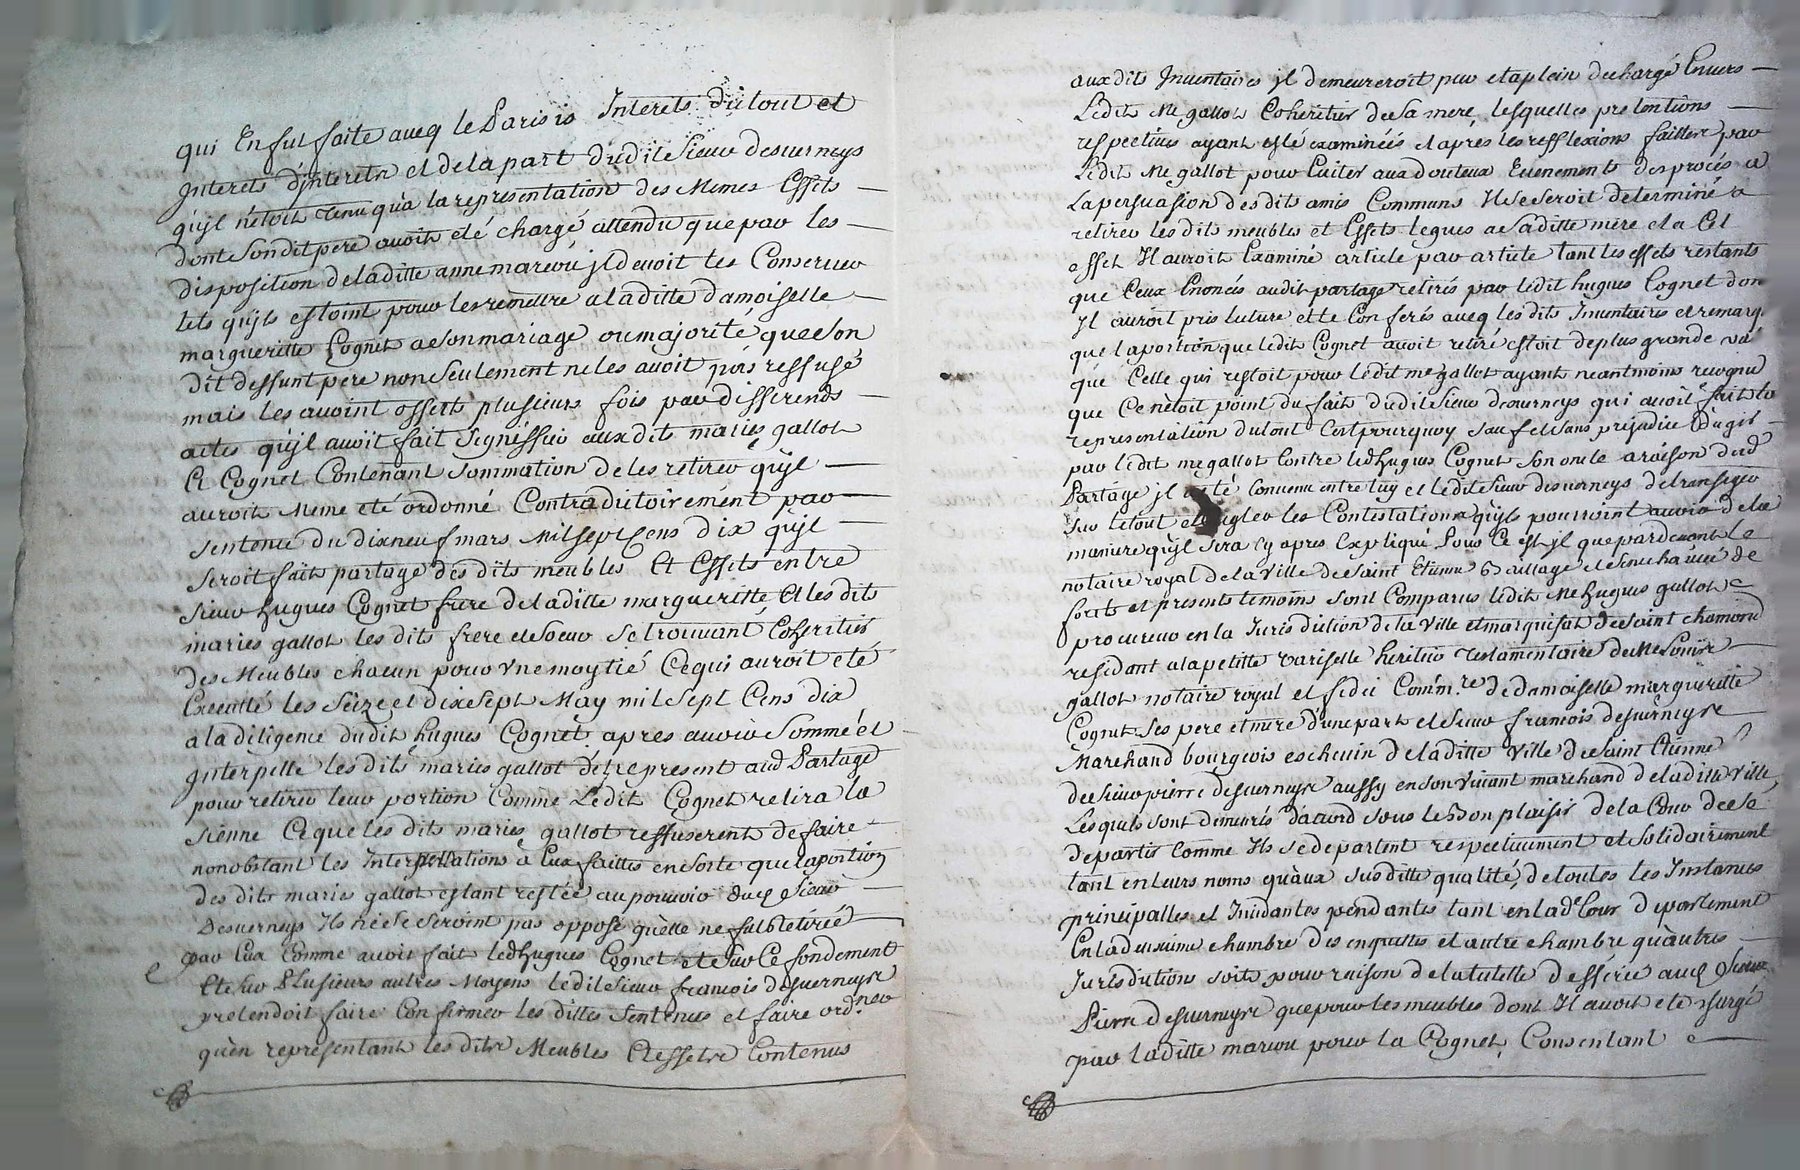 qui En fut faite avecq le Parisis Interets du tout et
Interets d'interetz et de la part dudit Sieur desverneys
qujl nétoit tenu qu'a la representation des Memes Effets
dont Son dit pere avoit eté chargé attendu que par les
disposition de laditte anne marcou jl devoit les Conserver
tels qujls estoint pour les remettre a laditte damoiselle
margueritte Cognet a Son mariage ou majorité que Son
dit deffunt pere non Seulement ne les avoit pois reffusé
mais les avoint offerts plusieurs fois par differends
actes qujl avoit fait Signiffier aux dits mariés gallot
Et Cognet Contenant Sommation de les retirer qujl
auroit Meme eté ordonné Contradictoirement par
Sentence du dixneuf mars Mil Sept Cens dix qujl
Seroit fait partage des dits meubles Et Effets entre
Sieur hugues Cognet frere de laditte margueritte Et les dits
mariés gallot les dits frere et Soeur Se trouvant Coheritiers
des Meubles chacun pour Vne moytié Ce qui auroit eté
Executté les Seize et dix Sept May mil Sept Cens dix
a la diligence dudit hugues Cognet apres avoir Sommé et
Interpellé les dits mariés gallot détre present aud Partage
pour retirer leur portion Comme Ledit Cognet retira la
Sienne Ce que les dits mariés gallot reffuserent de faire
nonobstant les Interpellations à Eux faittes en Sorte que la portion
des dits mariés gallot estant restée au pouvoir dud Sieur
Desverneys Ils ne Se Seroint pas opposé qu'elle ne fut Retirée
par Eux Comme avoit fait led hugues Cognet et Sur Ce fondement
Et Sur Plusieurs autres Moyens ledit Sieur françois desverneys
pretendoit faire Confirmer les dittes Sentences et faire ord.ner
qu'en representant les dits Meubles Et effets Contenus
aux dits Inventaires jl demeureroit pur et a plein dechargé Envers
Ledit Me gallot Coheritier de Sa mere, lesquelles pretentions
respectives ayant esté examinéés et aprés les refflexions faittes par
Ledit Me gallot pour Eviter aux douteux Evenements des procés a
La persuasion des dits amis Communs Il Se Seroit determiné a
retirer les dits meubles et Effets legues a Sa ditte mere et a Cet
effet Il auroit Examiné article par article tant les effets restants
que Ceux Enoncés audit partage retirés par ledit hugues Cognet dont
Il auroit pris lecture et le Conferés avecq les dits Inventaires et remarq
que la portion que ledit Cognet avoit retiré estoit de plus grande val
que Celle qui restoit pour ledit me gallot ayant neantmoins recognu
que Ce nétoit point du fait dudit Sieur desverneys qui avoit fait la
representation du tout C'est pourquoy Sauf et Sans prejudice d'agir
par ledit me gallot Contre led hugues Cognet Son oncle a raison dud
Partage jl esté Convenu entre luy et ledit Sieur desverneys de transiger
Sur le tout et regler les Contestations qujls pourroint avoir de la
maniere qujl Sera Cy apres Expliqué Pour Ce est jl que pardevant Le
notaire royal de la Ville de Saint Etienne Baillage et Senechaucée de
forets et presents temoins Sont Comparus ledit Me hugues gallot
procureur en la Jurisdiction de la Ville et marquisat de Saint chamond
residant a la petitte Variselle heritier testamentaire de Me
gallot notaire royal et fidei Comm.re de damoiselle margueritte
Cognet Ses pere et mere d'une part et Sieur françois desverneys
Marchand bourgeois eschevin de laditte Ville de Saint Etienne
de Sieur pierre desverneys aussy en Son Vivant marchand de laditte Ville
Lesquels Sont demeurés d'acord Sous le Bon plaisir de la Cour de Se
departir Comme Ils Se departent respectivement et Solidairement
tant en leurs noms qu'aux Susditte qualité, de toutes les Instances
principalles et Incidantes pendantes tant en lad.e Cour de parlement
En la deuxieme chambre des enquettes et autre chambre qu'autres
Jurisdictions Soit pour raison de la tutelle defferée aud Sieur
Pierre desverneys que pour les meubles dont Il avoit eté chargé
par laditte marcou pour la Cognet, Consentant